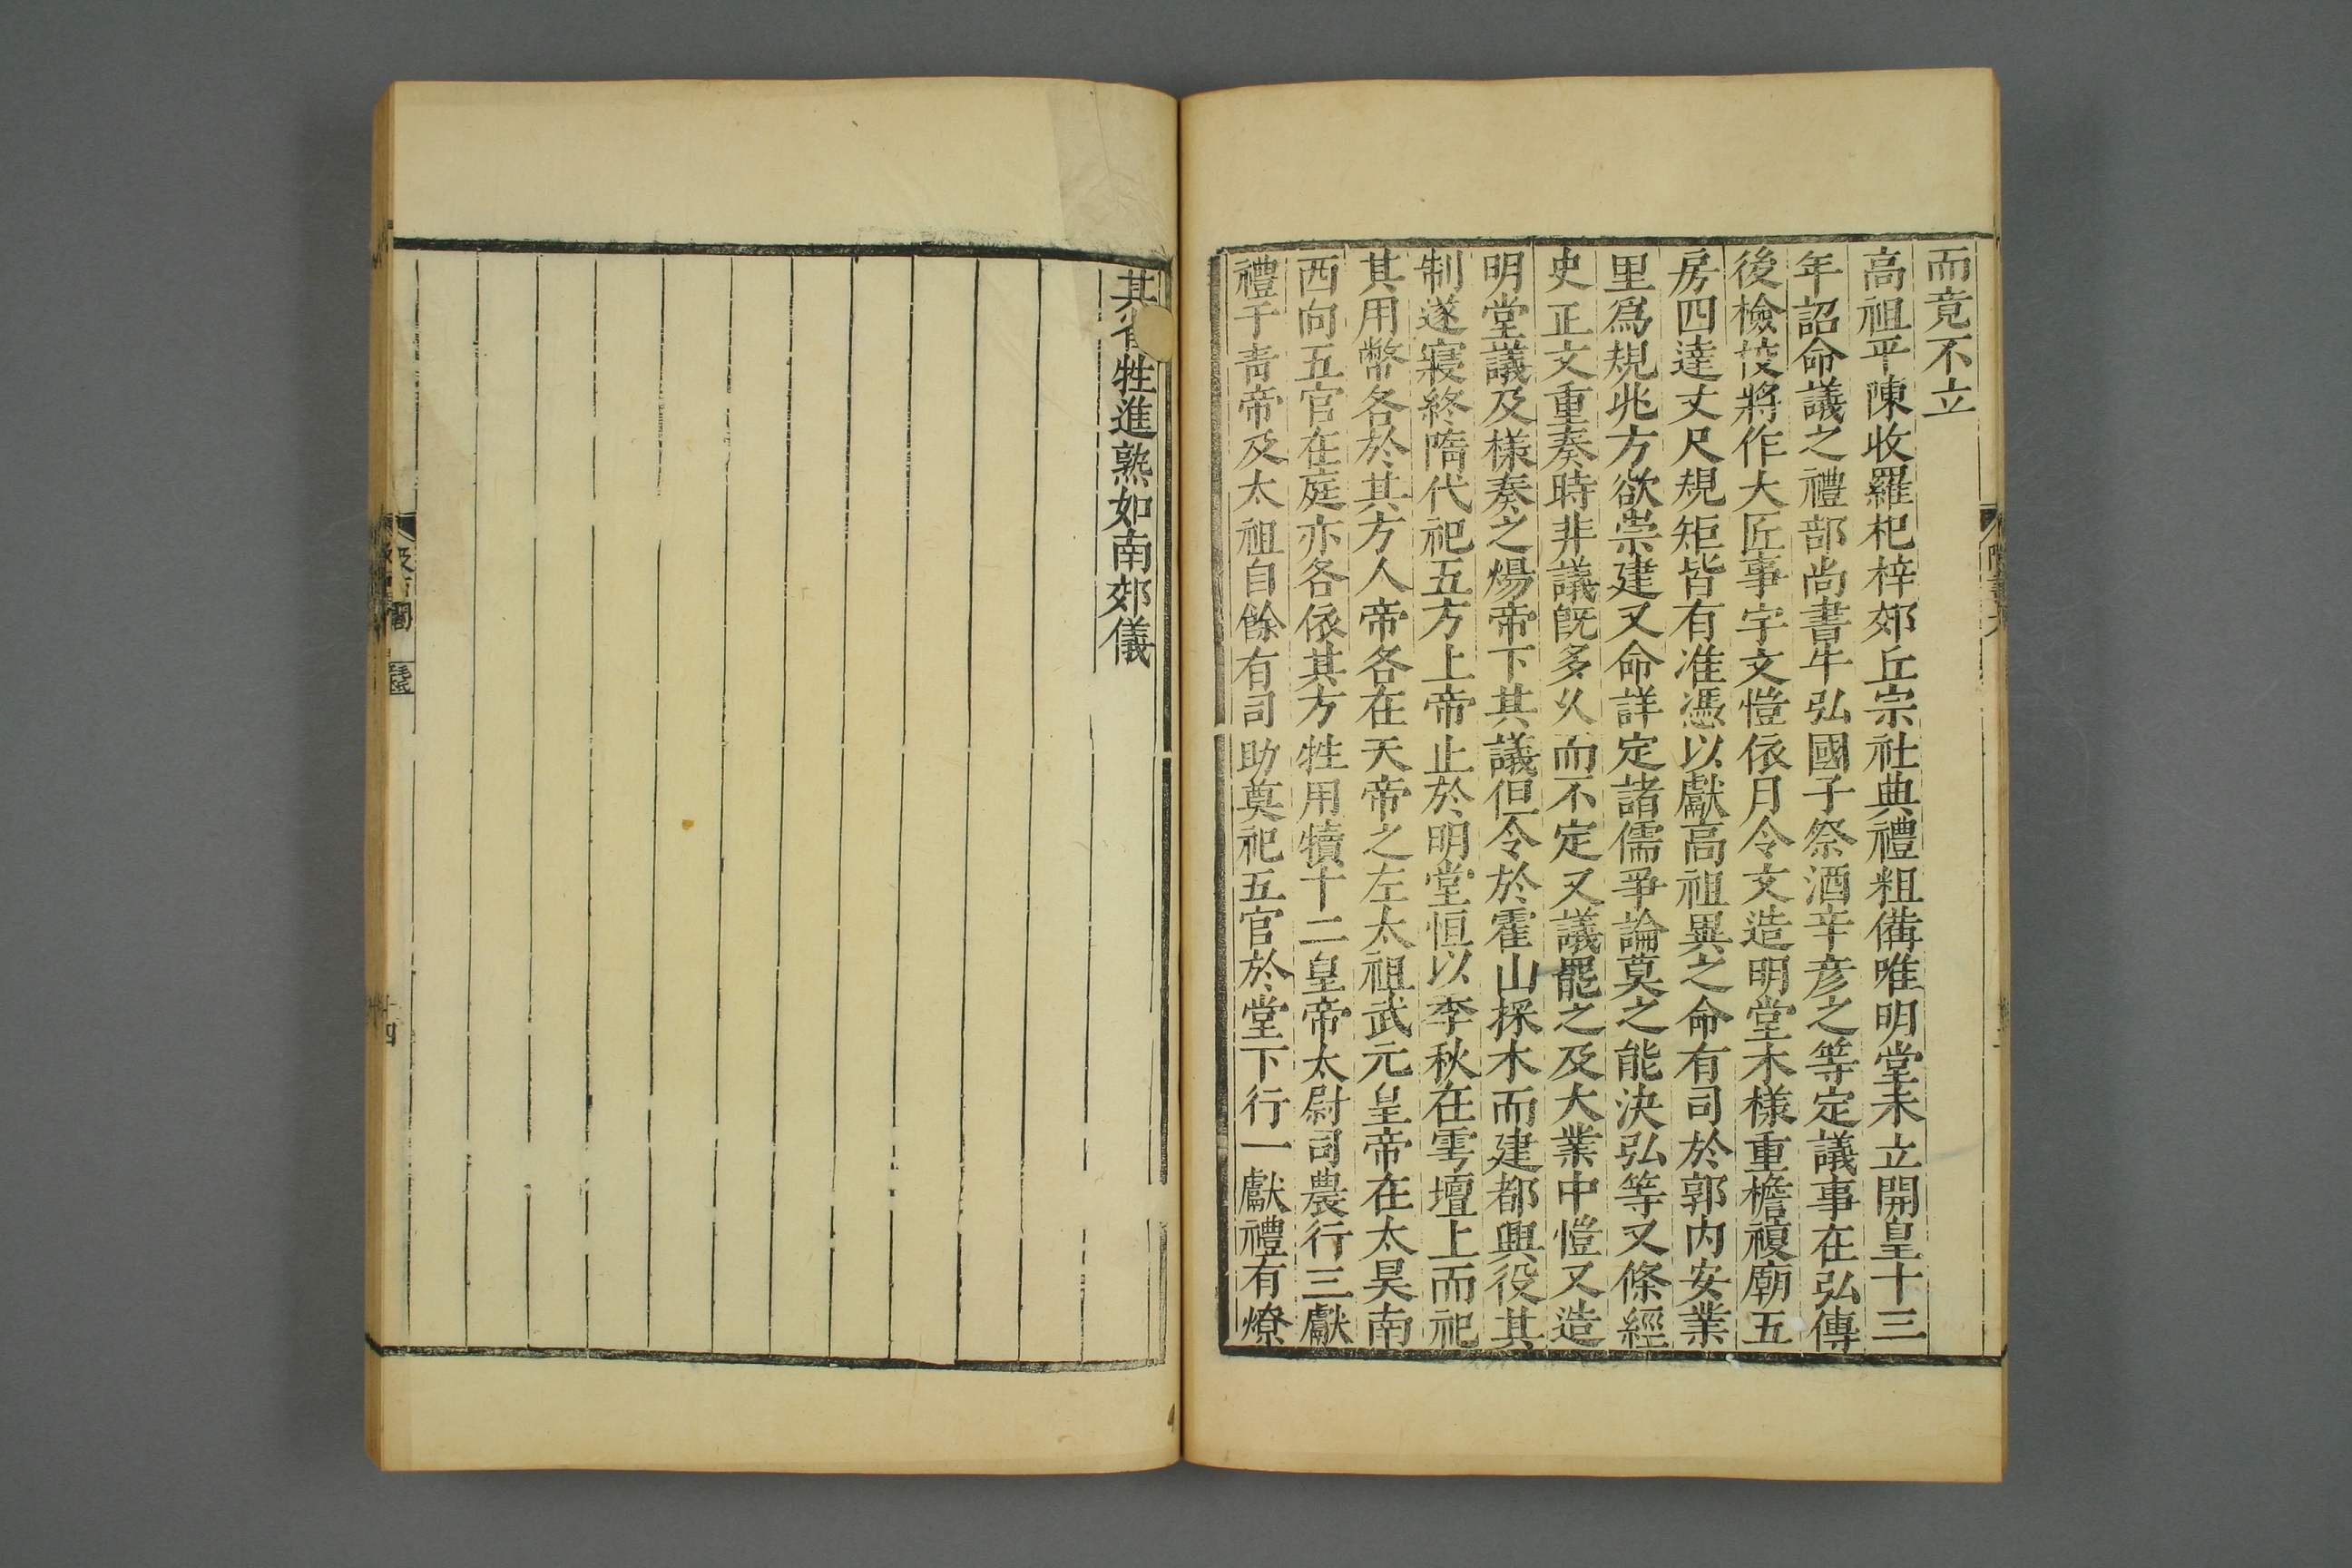 而竟不立
高祖平陳收羅杞梓郊丘宗社典禮粗備唯明堂未立開皇十三
年詔命議之禮部尚書牛弘國子祭酒辛彦之等定議事在弘傳
後檢校將作大匠事宇文愷依月令文造明堂木樣重檐複廟五
房四達丈尺規矩皆有准憑以獻高祖異之命有司於郭内安業
里爲規兆方欲崇建又命詳定諸儒爭論莫之能決弘等又條經
史正文重奏時非議旣多乆而不定又議罷之及大業中愷又造
明堂議及樣奏之煬帝下其議但令於霍山採木而建都興役其
制遂寢終隋代祀五方上帝止於明堂恒以季秋在雩壇上而祀
其用幣各於其方人帝各在天帝之左太祖武元皇帝在太昊南
西向五官在庭亦各依其方牲用犢十二皇帝太尉司農行三獻
禮于青帝及太祖自餘有司助奠祀五官於堂下行一獻禮有燎
其省牲進熟如南郊儀
閣
毛氏
十四